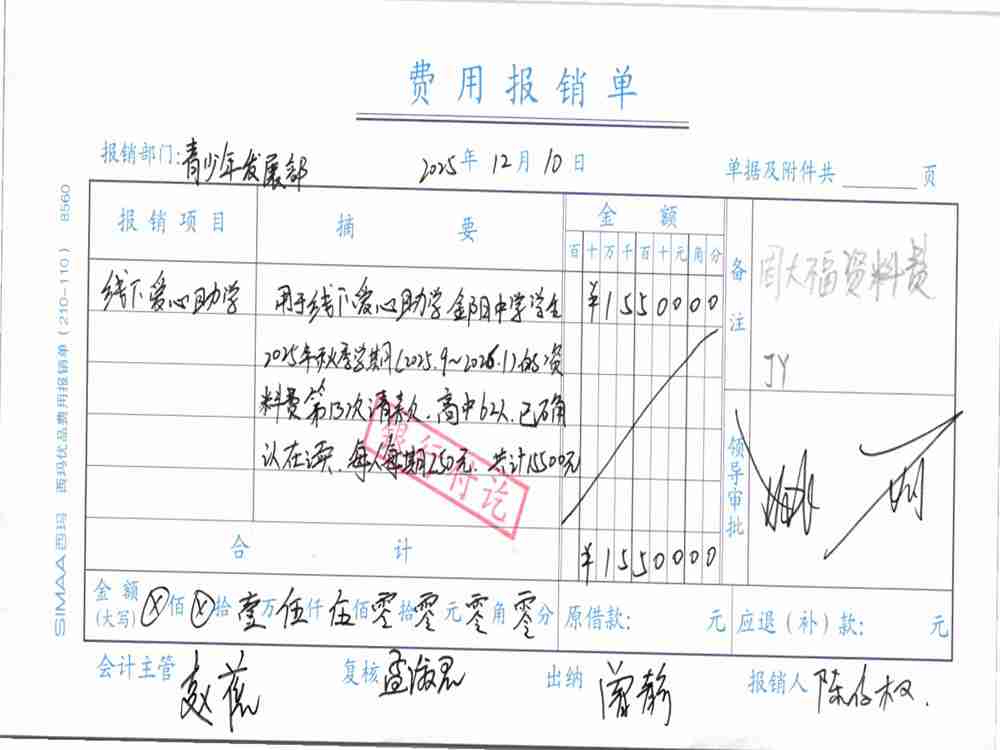 费用报销单
报销部门:青少年发展部 2025年12月10日 单据及附件共 页
报销项目 摘要 金额
百十万千百十元角分
备注
线下爱心助学 用于线下爱心助学金阳中学学生 ¥1550000
大福资料费
2025年秋季学期(2025.9~2026.1)的资
JY
料费第13次请款,高中62人,已确
认在读,每人每期250元,共计15500元
银行付讫
领导审批
合计 ¥1550000
金额(大写) ⊗佰⊗拾壹万伍仟伍佰零拾零元零角零分 原借款: 元 应退(补)款: 元
会计主管 赵 复核 孟 出纳 曾静 报销人 陈
SIMAA西玛 西玛优品费用报销单(210-110) 8560